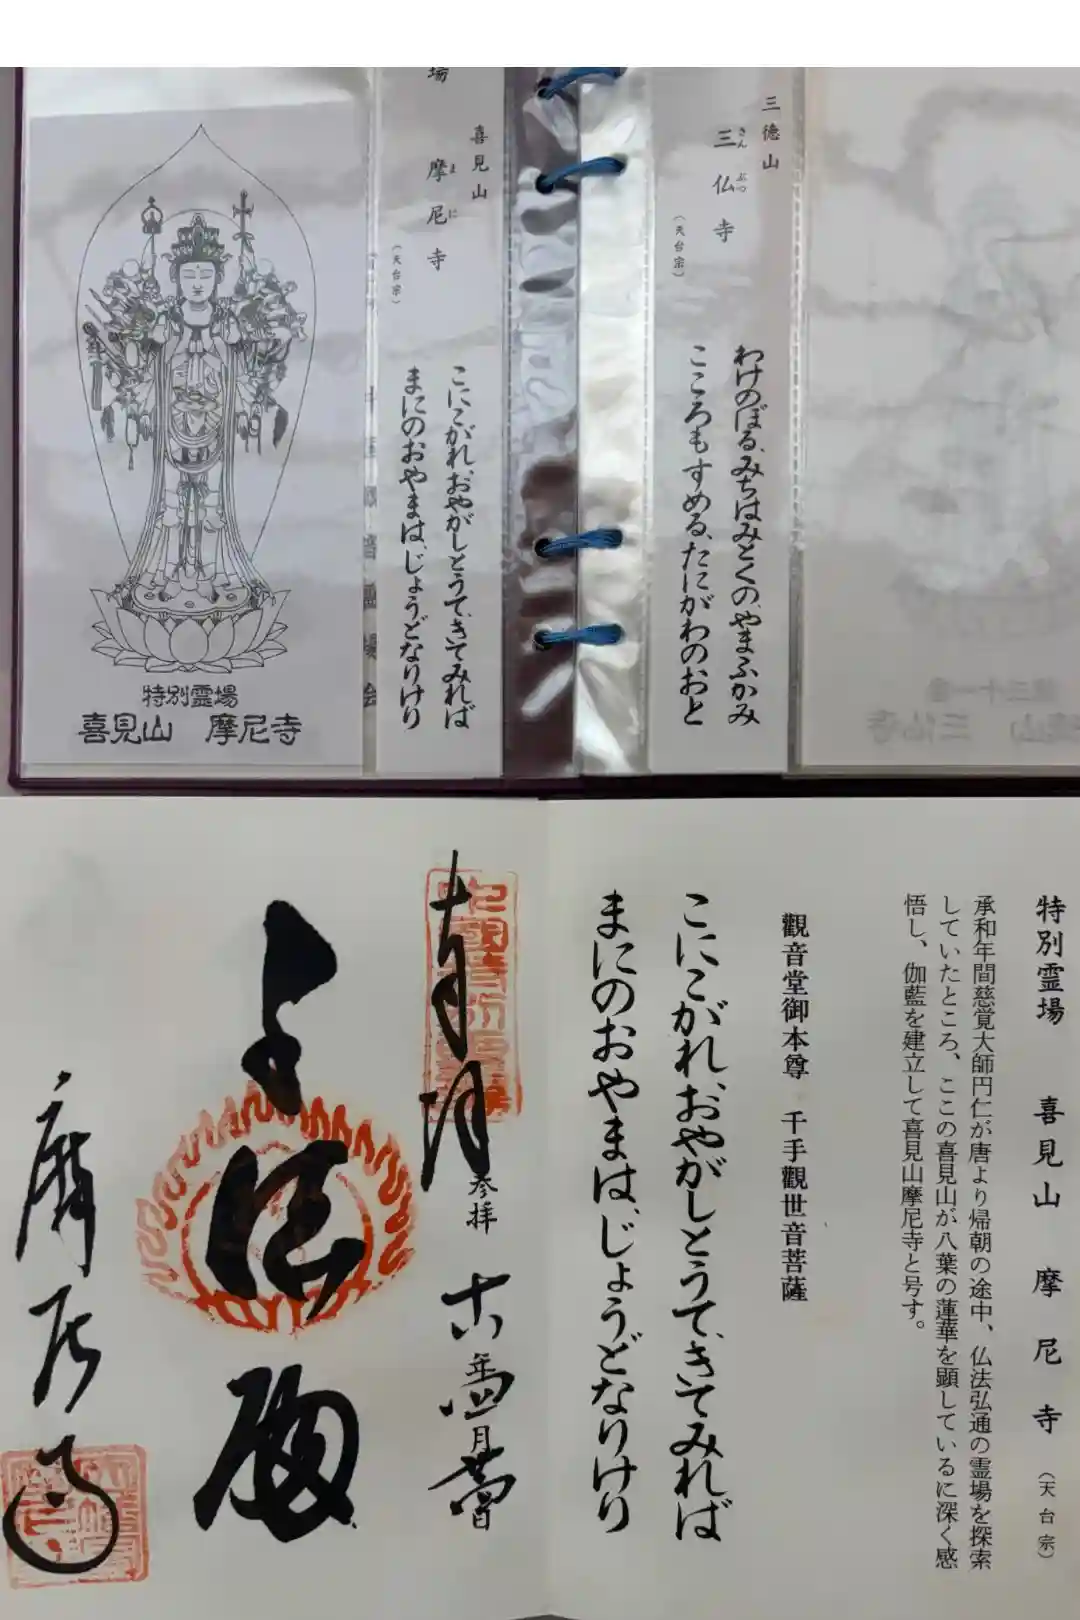 三徳山
三仏寺
さんぶつ
(天台宗)
わけのぼる、みちはみとくの、やまふかみ
こころもすめる、たにがわのおと
喜見山
場　摩尼寺
まに
(天台宗)
こにこがれ、おやがしとうて、きてみれば
まにのおやまは、じょうどなりけり
特別霊場
喜見山　摩尼寺
特別霊場　喜見山　摩尼寺　(天台宗)
承和年間慈覚大師円仁が唐より帰朝の途中、仏法弘通の霊場を探索
していたところ、ここの喜見山が八葉の蓮華を顕しているに深く感
悟し、伽藍を建立して喜見山摩尼寺と号す。
觀音堂御本尊　千手觀世音菩薩
こにこがれ、おやがしとうて、きてみれば
まにのおやまは、じょうどなりけり
参拝
摩尼寺